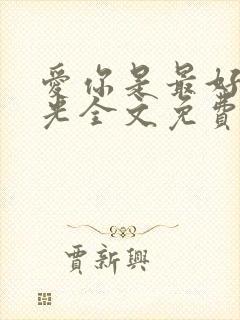 愛你是最好
光全文免費
賈新興